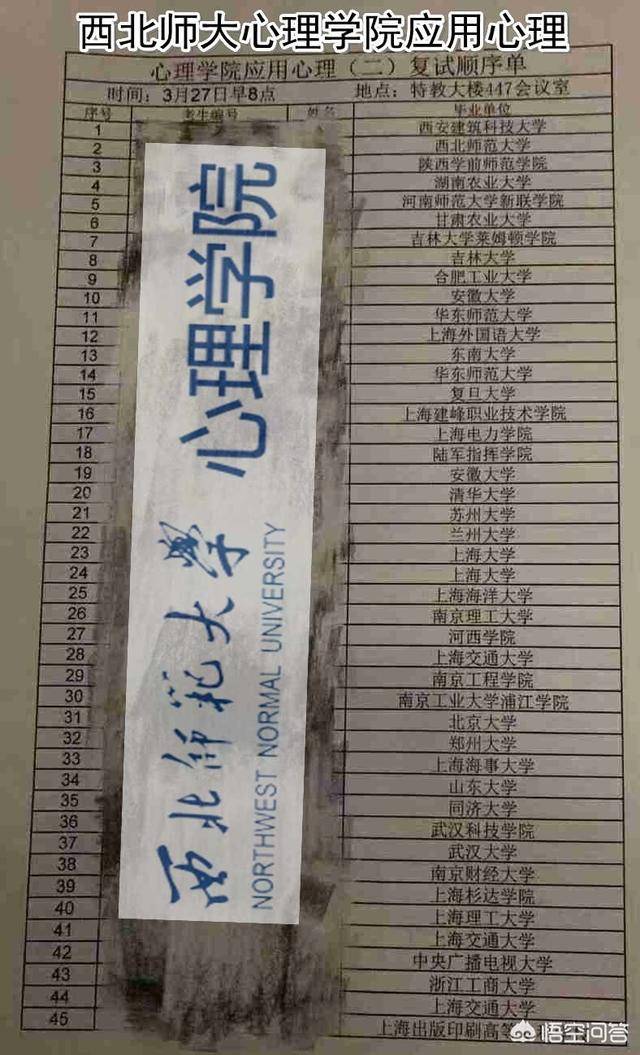 西北师大心理学院应用心理
心理学院应用心理（二）复试顺序单
时间：3月27日早8点 地点：特教大楼447会议室
序号 考生编号 姓名 毕业单位
1 西安建筑科技大学
2 西北师范大学
3 陕西学前师范学院
4 湖南农业大学
5 河南师范大学新联学院
6 甘肃农业大学
7 吉林大学莱姆顿学院
8 吉林大学
9 合肥工业大学
10 安徽大学
11 华东师范大学
12 上海外国语大学
13 东南大学
14 华东师范大学
15 复旦大学
16 上海建峰职业技术学院
17 上海电力学院
18 陆军指挥学院
19 安徽大学
20 清华大学
21 苏州大学
22 兰州大学
23 上海大学
24 上海大学
25 上海海洋大学
26 南京理工大学
27 河西学院
28 上海交通大学
29 南京工程学院
30 南京工业大学浦江学院
31 北京大学
32 郑州大学
33 上海海事大学
34 山东大学
35 同济大学
36 武汉科技学院
37 武汉大学
38 南京财经大学
39 上海杉达学院
40 上海理工大学
41 上海交通大学
42 中央广播电视大学
43 浙江工商大学
44 上海交通大学
45 上海出版印刷高等
西北师范大学 心理学院
NORTHWEST NORMAL UNIVERSITY
悟空问答